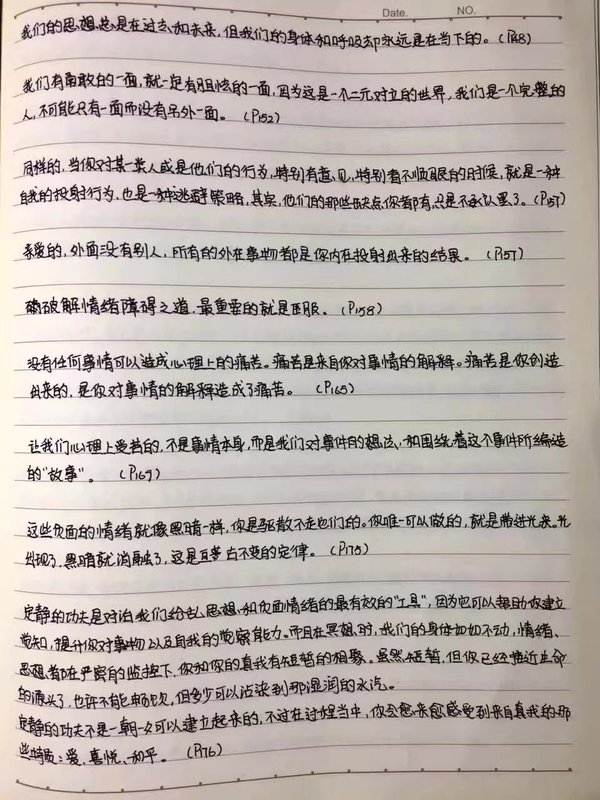 Date.
NO.
我们的思想总是在过去和未来，但我们的身体和呼吸却永远是在当下的。（P148）
我们有勇敢的一面，就一定有胆怯的一面，因为这是一个二元对立的世界，我们是一个完整的
人，不可能只有一面而没有另外一面。（P152）
同样的，当你对某一类人或是他们的行为，特别有意见，特别看不顺眼的时候，就是一种
自我的投射行为，也是一种逃避策略，其实，他们的那些缺点你都有，只是不承认罢了。（P157）
亲爱的，外面没有别人，所有的外在事物都是你内在投射出来的结果。（P157）
破解情绪障碍之道，最重要的就是臣服。（P158）
没有任何事情可以造成心理上的痛苦。痛苦是来自你对事情的解释。痛苦是你创造
出来的，是你对事情的解释造成了痛苦。（P165）
让我们心理上受苦的，不是事情本身，而是我们对事件的想法，和围绕着这个事件所编造
的“故事”。（P169）
这些负面的情绪就像黑暗一样，你是驱散不走他们的。你唯一可以做的，就是带进光来。光
出现了，黑暗就消融了，这是亘古不变的定律。（P175）
定静的功夫是对治我们纷乱思想和负面情绪的最有效的“工具”，因为它可以帮助你建立
觉知，提升你对事物以及自我的觉察能力。而且在冥想时，我们的身体如如不动，情绪、
思想都在严密的监控下，你和你的真我有短暂的相聚。虽然短暂，但你已经接近生命
的源头了，也许不能畅饮，但多少可以沾染到那湿润的水汽。
定静的功夫不是一朝一夕可以建立起来的，不过在过程当中，你会愈来愈感受到来自真我的那
些特质：爱、喜悦、和平。（P176）